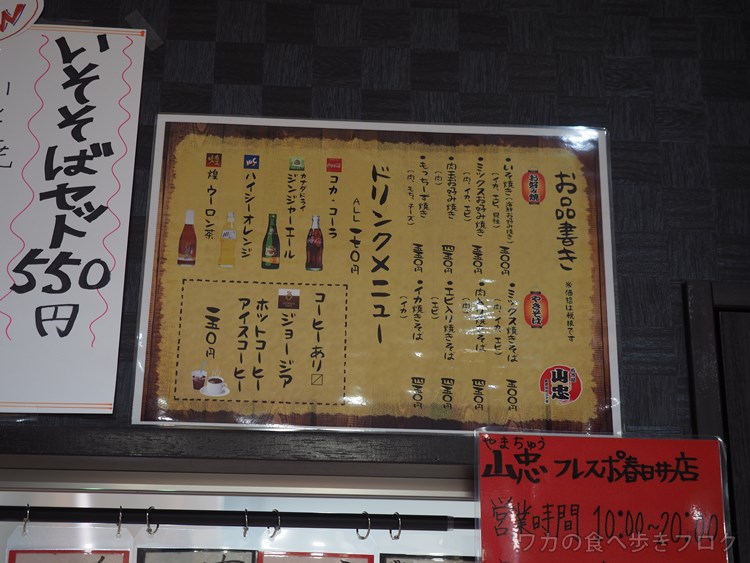 いそそばセット
550円
お品書き
※価格は税抜です
お好み焼
・いそ焼き(海鮮お好み焼き)
(イカ、エビ、
・ミックスお好み焼き
(肉、イカ、エビ)
五五〇円
・肉玉お好み焼き
(肉)
四五〇円
・もっちーず焼き
(肉、もち、チーズ)
五五〇円
やきそば
・ミックス焼きそば
(肉、イカ、エビ)
・肉入り焼きそば
(肉)
四五〇円
・エビ入り焼きそば
(エビ)
四五〇円
・イカ焼きそば
(イカ)
四五〇円
山忠
ドリンクメニュー
ALL 一七〇円
コカ・コーラ
カナダドライ
ジンジャーエール
ハイシーオレンジ
煌 ウーロン茶
コーヒーあり〼
ジョージア
ホットコーヒー
アイスコーヒー
一五〇円
やまちゅう
山忠 フレスポ春日井店
営業時間 10:00~20:00
ワカの食べ歩きブログ